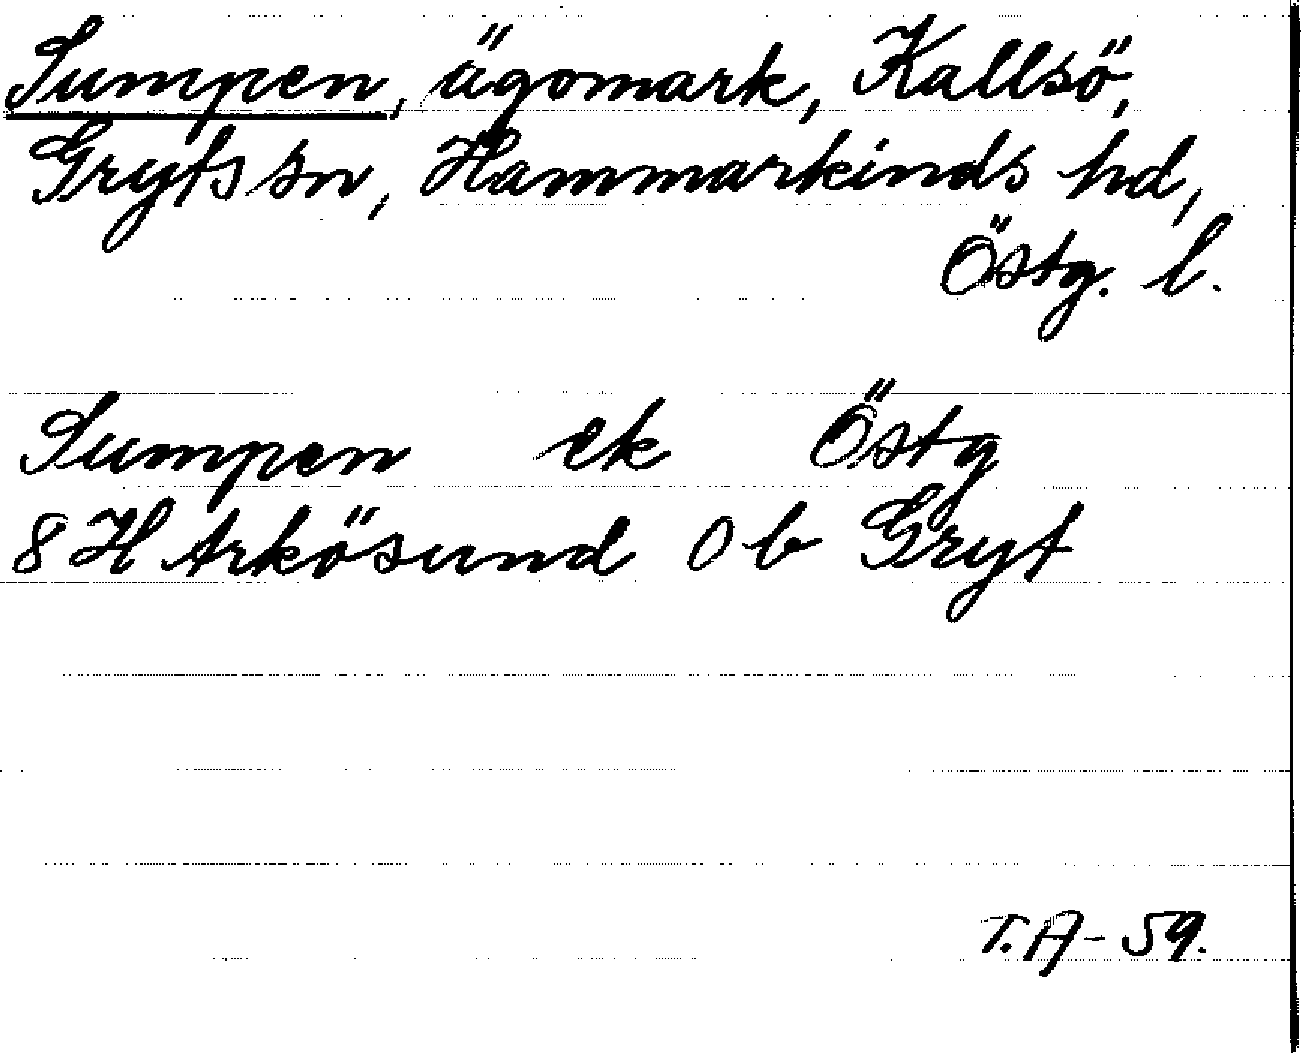 Sumpen, ägomark, Kallsö,
Gryts sn, Hammarkinds hd,
Östg. l.
Sumpen ek Östg
8 H Arkösund 0 b Gryt
T.A-59.